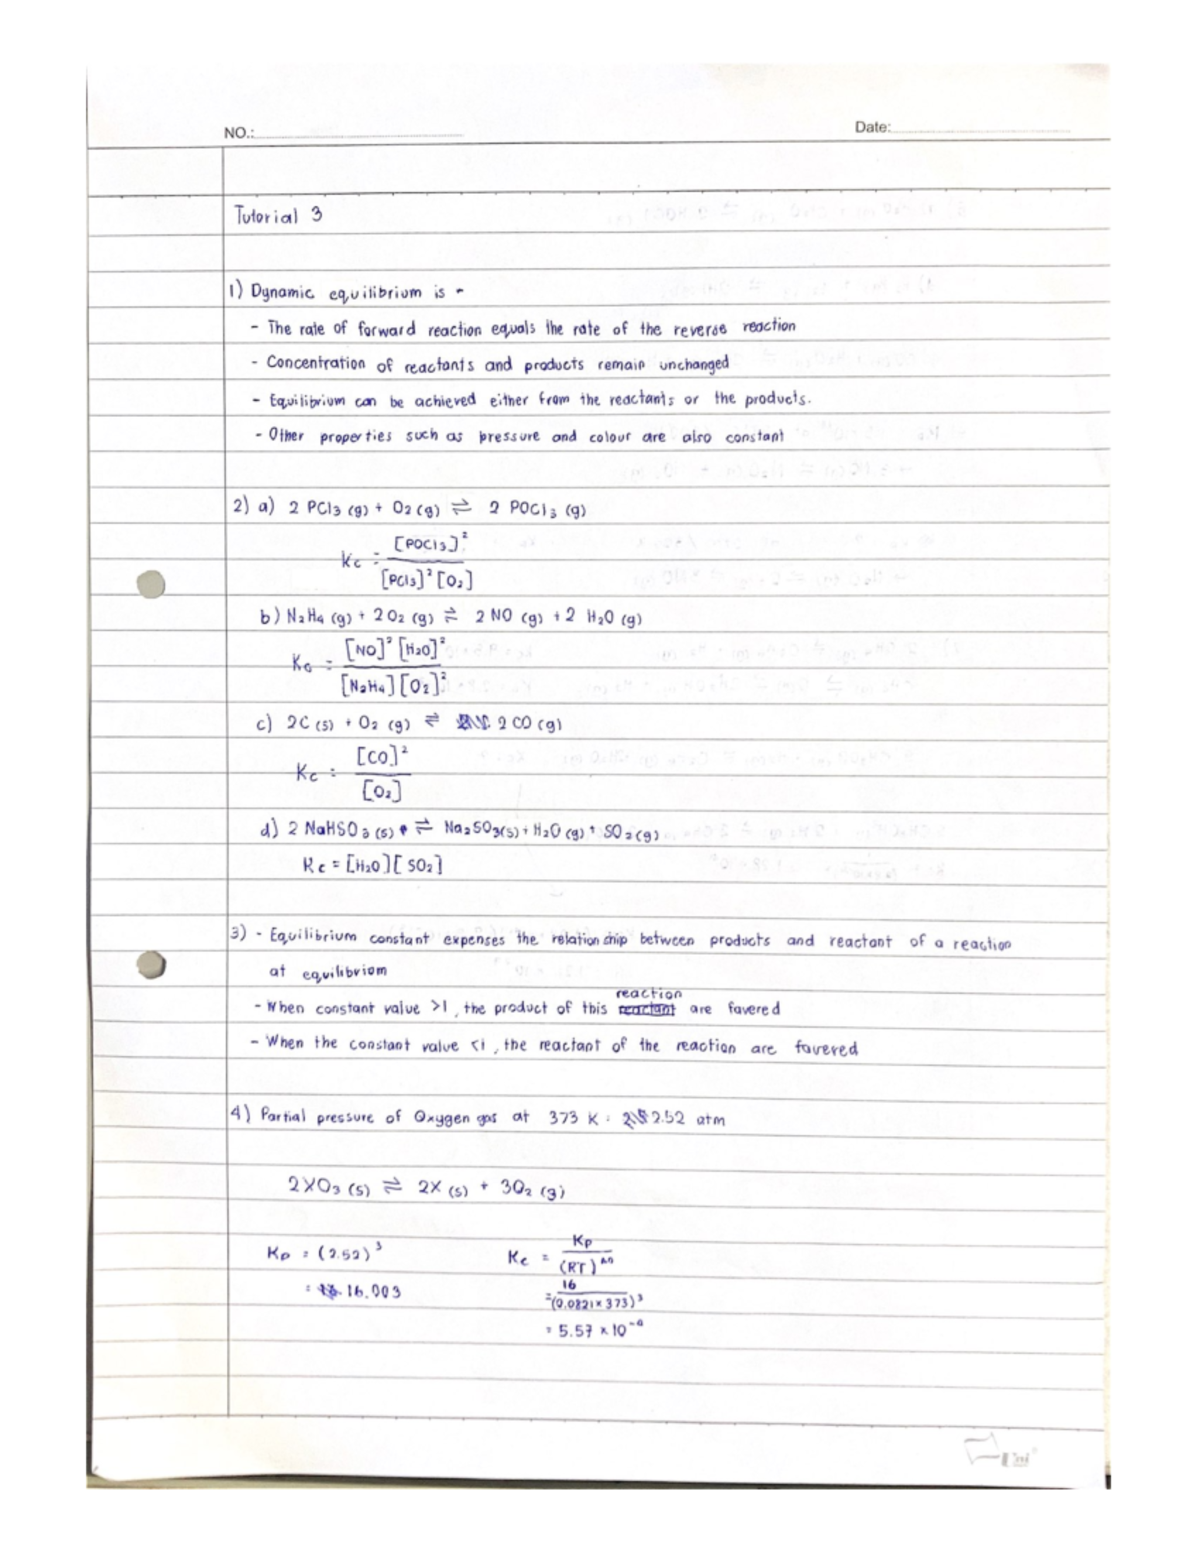 NO.:
Date:
Tutorial 3
1) Dynamic equilibrium is -
- The rate of forward reaction equals the rate of the reverse reaction
- Concentration of reactants and products remain unchanged
- Equilibrium can be achieved either from the reactants or the products.
- Other properties such as pressure and colour are also constant
2) a) 2 PCl3 (g) + O2 (g) ⇌ 2 POCl3 (g)
Kc = [POCl3]² / [PCl3]² [O2]
b) N2H4 (g) + 2O2 (g) ⇌ 2 NO (g) + 2 H2O (g)
Kc = [NO]² [H2O]² / [N2H4] [O2]²
c) 2C (s) + O2 (g) ⇌ 2 CO (g)
Kc = [CO]² / [O2]
d) 2 NaHSO3 (s) ⇌ Na2SO3(s) + H2O (g) + SO2 (g)
Kc = [H2O][SO2]
3) - Equilibrium constant expenses the relationship between products and reactant of a reaction
at equilibriom
reaction
- When constant value >1, the product of this reactant are favered
- When the constant value <1, the reactant of the reaction are favered
4) Partial pressure of Oxygen gas at 373 K : 2.52 atm
2XO3 (s) ⇌ 2X (s) + 3O2 (g)
Kp = (2.52)³
= 16.003
Kc = Kp / (RT)^Δn
= 16 / (0.0821 x 373)³
= 5.57 x 10